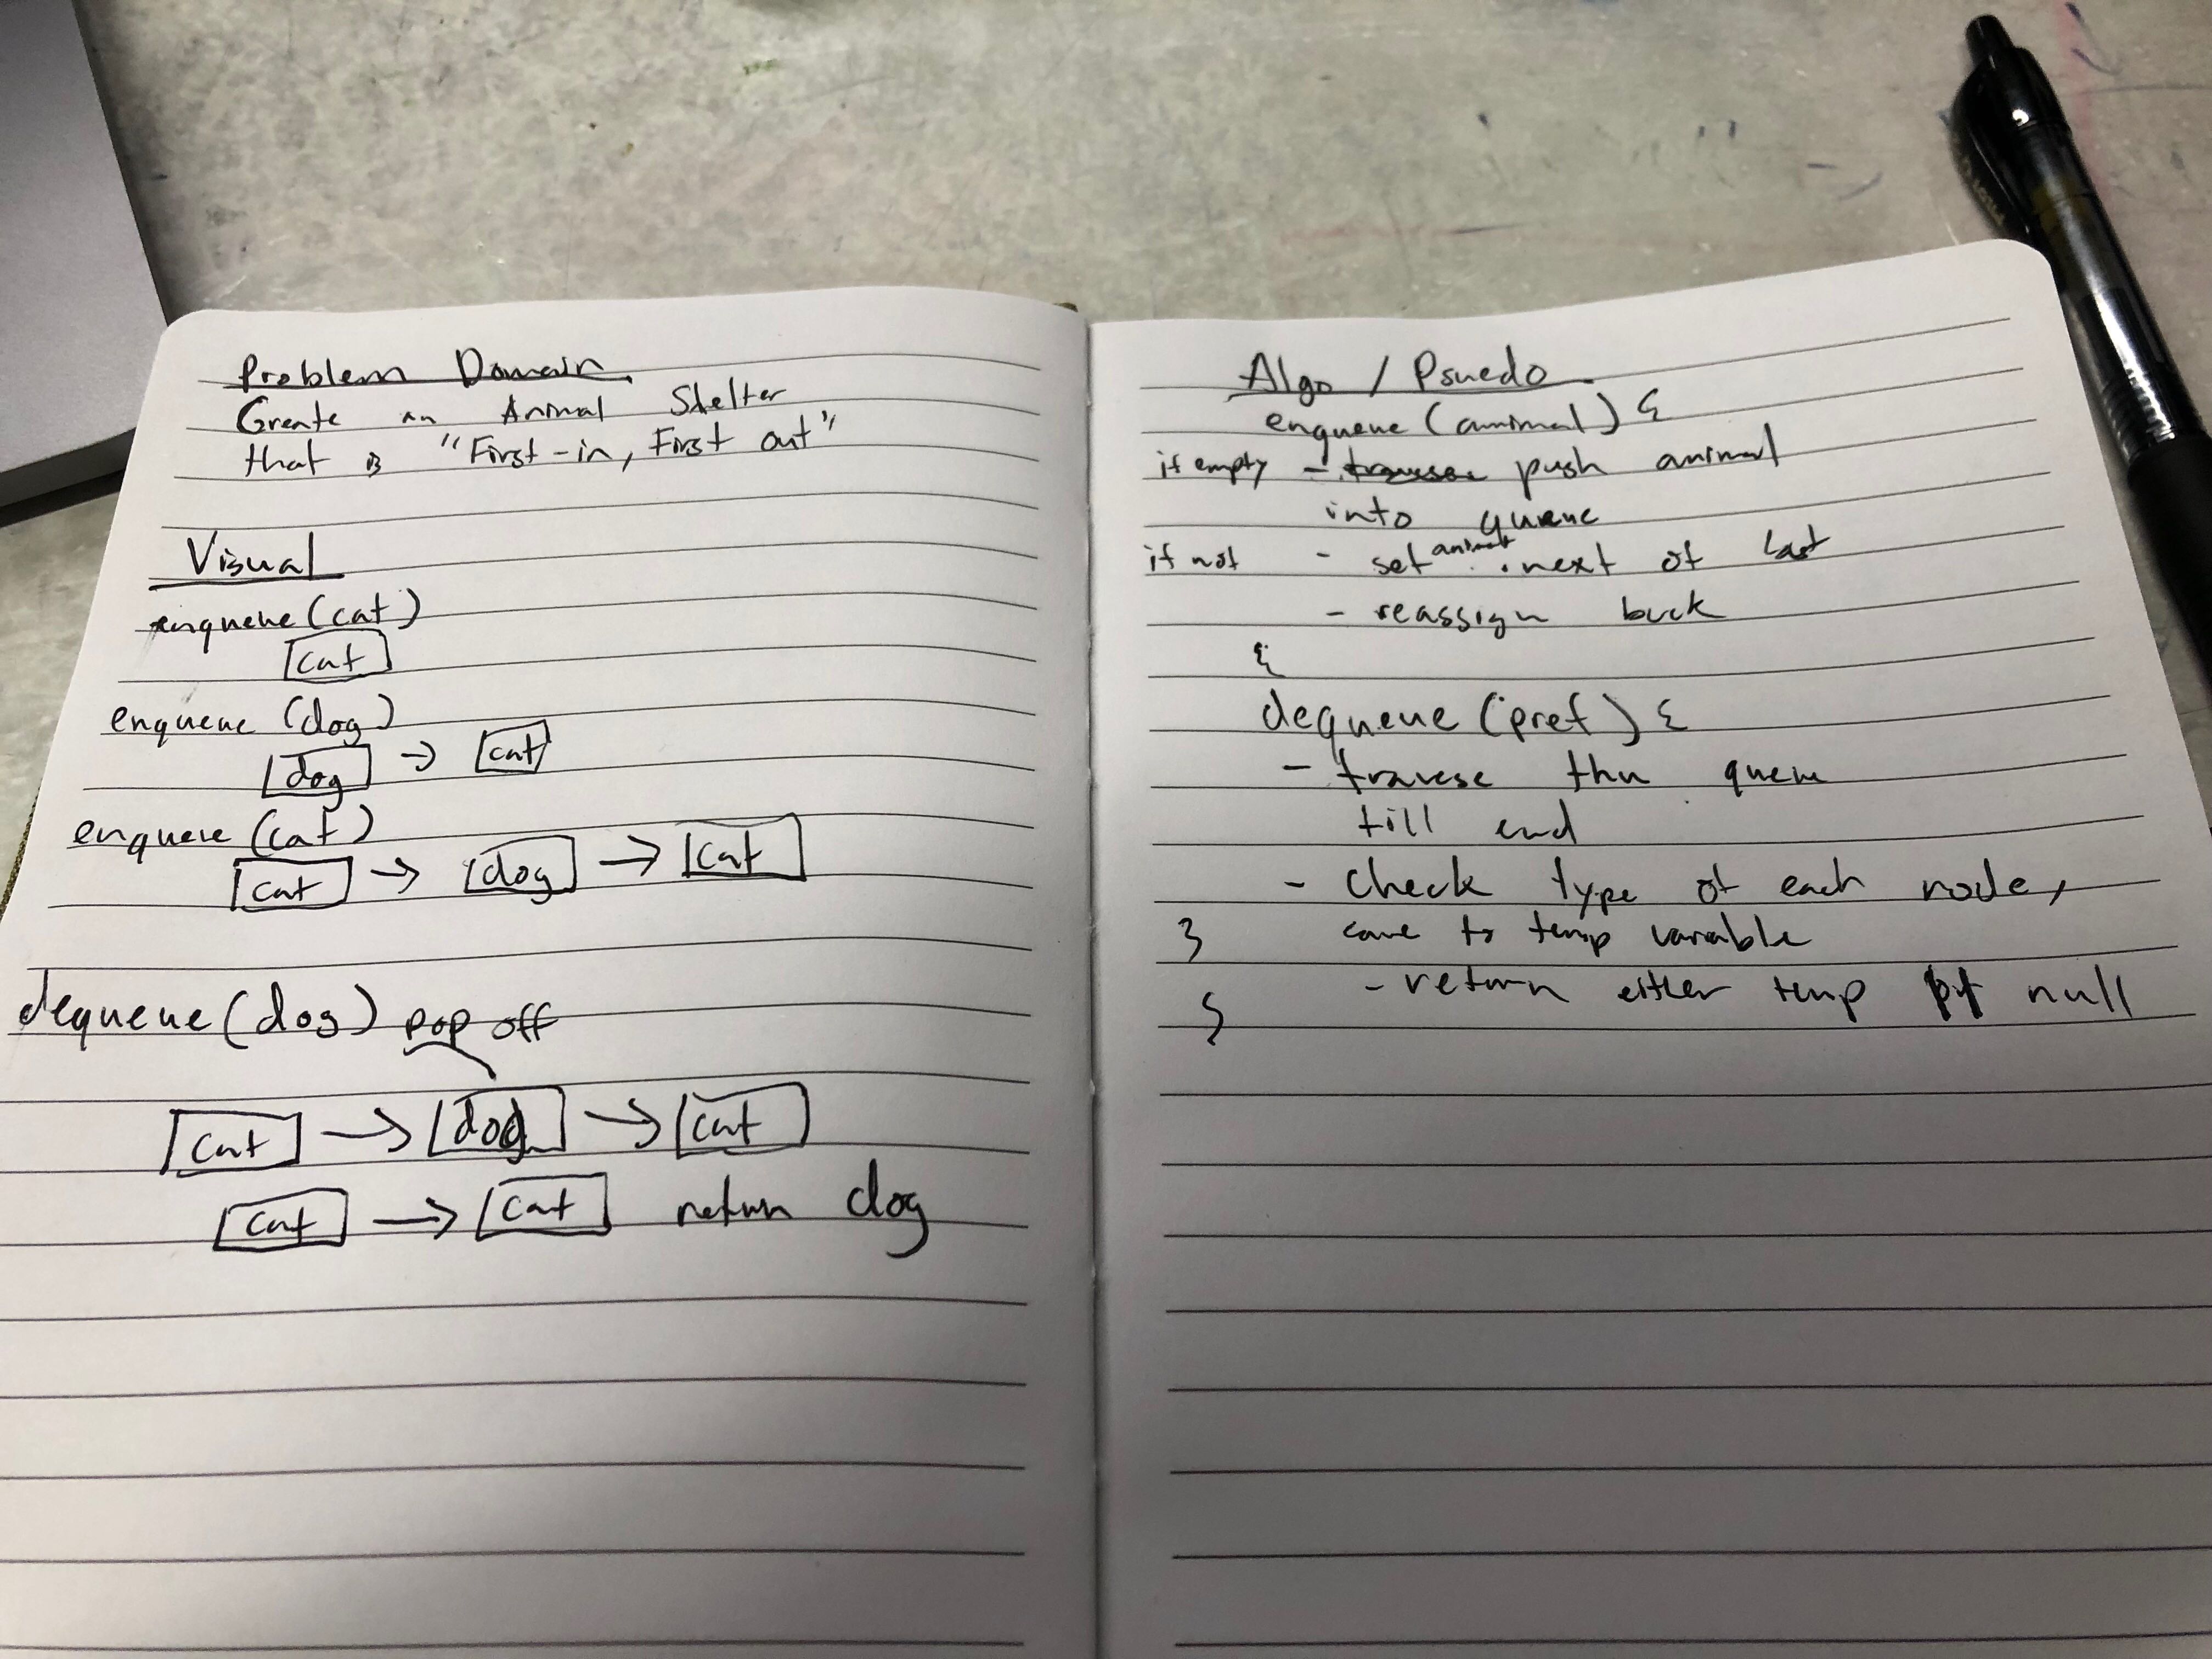 Problem Domain
Create an Animal Shelter
that is "First-in, First out"
Visual
enqueue(cat)
cat
enqueue (dog)
dog → cat
enqueue (cat)
cat → dog → cat
dequeue(dog) pop off
cat → dog → cat
cat → cat return dog
Algo / Psuedo
enqueue (animal) {
if empty - push animal
into queue
if not - set animal.next of last
- reassign back
{
dequeue (pref) {
- travese thru queue
till end
- check type of each node,
} save to temp variable
- return either temp null
}